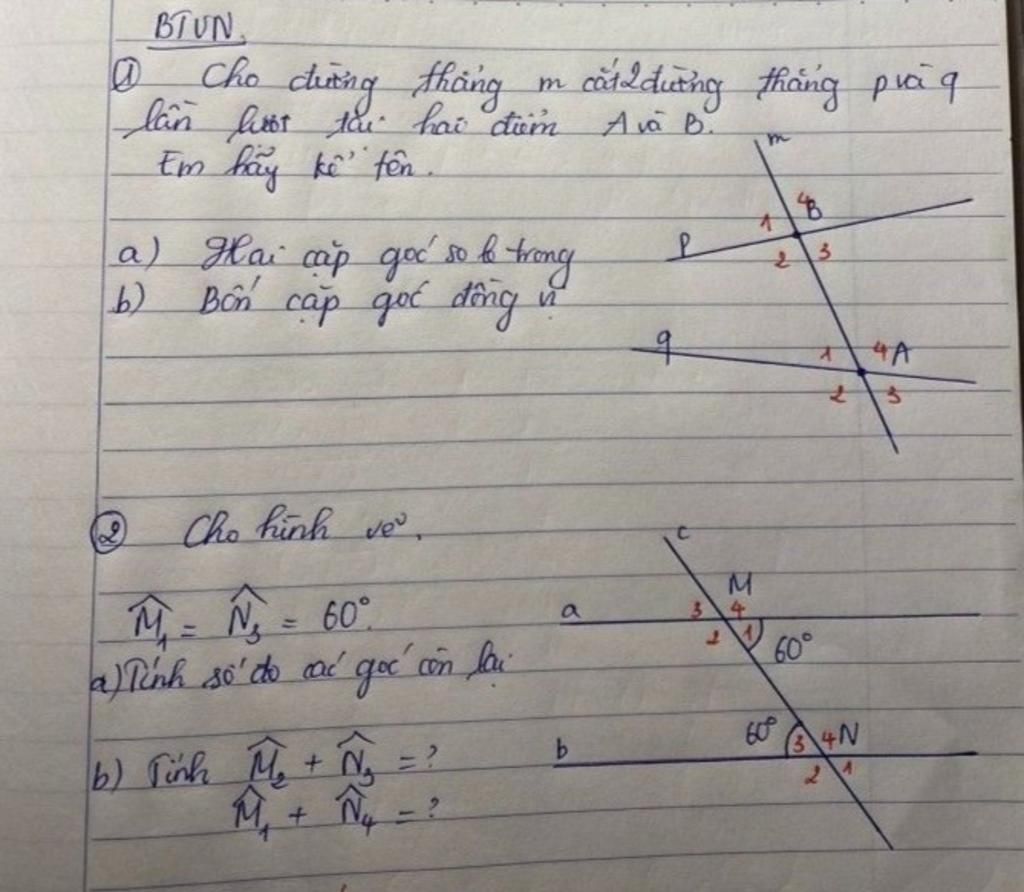 BTVN.
① Cho đường thẳng m cắt 2 đường thẳng p và q
lần lượt tại hai điểm A và B.
Em hãy kể tên.
a) Hai cặp góc so le trong
b) Bốn cặp góc đồng vị
m
1 4 B
p 2 3
q 1 4 A
2 3
② Cho hình vẽ.
M̂₁ = N̂₃ = 60°.
a) Tính số đo các góc còn lại
b) Tính M̂₂ + N̂₃ = ?
M̂₁ + N̂₄ = ?
c
M
a 3 4
2 1 60°
60° 3 4 N
b 2 1